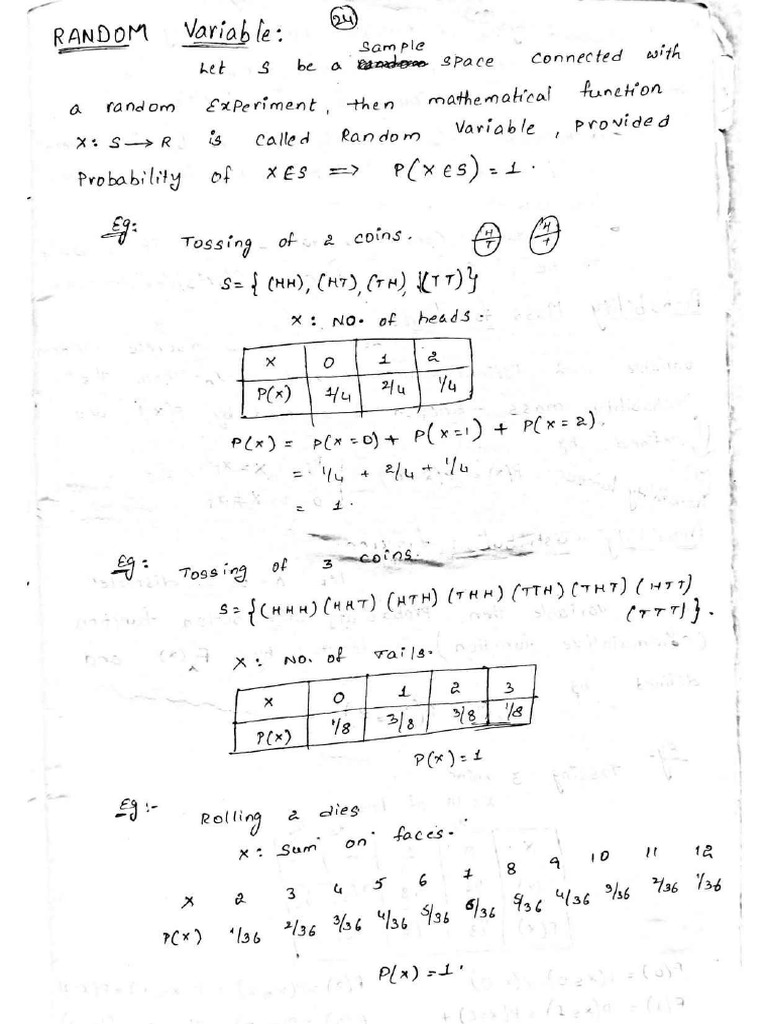 24
RANDOM Variable:
Let S be a Sample space connected with
a random Experiment, then mathematical function
X: S→R is called Random Variable, provided
Probability of X∈S ⟹ P(X∈S) = 1.
Eg: Tossing of 2 coins. H/T H/T
S= { (HH), (HT), (TH), (TT)}
X: NO. of heads.
X 0 1 2
P(X) 1/4 2/4 1/4
P(X) = P(X=0) + P(X=1) + P(X=2).
= 1/4 + 2/4 + 1/4
= 1.
Eg: Tossing of 3 coins.
S= {(HHH) (HHT) (HTH) (THH) (TTH) (THT) (HTT)
(TTT)}.
X: NO. of Tails.
X 0 1 2 3
P(X) 1/8 3/8 3/8 1/8
P(X) = 1
Eg:- Rolling 2 dies
X: Sum on faces.
X 2 3 4 5 6 7 8 9 10 11 12
P(X) 1/36 2/36 3/36 4/36 5/36 6/36 5/36 4/36 3/36 2/36 1/36
P(X) = 1.